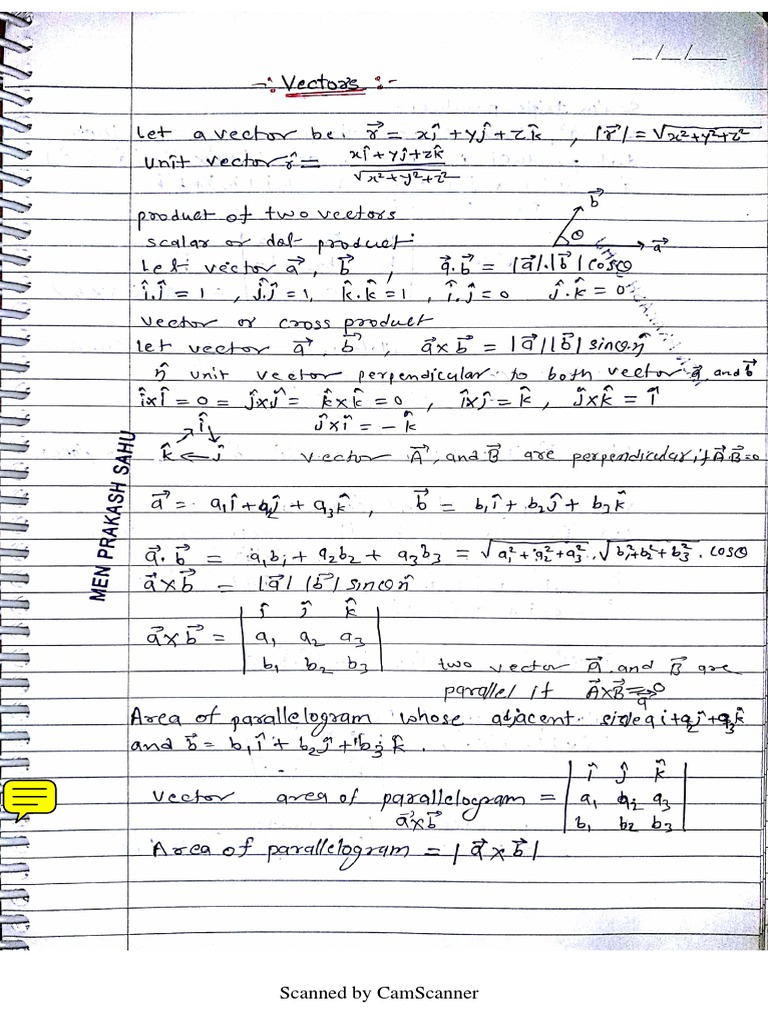 _/_/__
-: Vectors :-
Let a vector be. r⃗ = xî + yĵ + zk̂ , |r⃗| = √x²+y²+z²
Unit vector r̂ = xî+yĵ+zk̂ / √x²+y²+z²
product of two vectors
b⃗
θ
a⃗
scalar or dot product:
Let vector a⃗, b⃗ , a⃗.b⃗ = |a⃗|.|b⃗| cosθ
î.î = 1 , ĵ.ĵ = 1, k̂.k̂ = 1 , î.ĵ = 0 ĵ.k̂ = 0
vector or cross product
let vector a⃗, b⃗ , a⃗×b⃗ = |a⃗||b⃗| sinθ.n̂
n̂ unit vector perpendicular to both vector a⃗ and b⃗
î×î = 0 = ĵ×ĵ = k̂×k̂ = 0 , î×ĵ = k̂ , ĵ×k̂ = î
î ĵ×î = -k̂
k̂ ← ĵ vector A⃗, and B⃗ are perpendicular if A⃗.B⃗=0
MEN PRAKASH SAHU
a⃗ = a₁î + a₂ĵ + a₃k̂ , b⃗ = b₁î + b₂ĵ + b₃k̂
a⃗.b⃗ = a₁b₁ + a₂b₂ + a₃b₃ = √a₁²+a₂²+a₃² . √b₁²+b₂²+b₃² . cosθ
a⃗×b⃗ = |a⃗| |b⃗| sinθ n̂
î ĵ k̂
a⃗×b⃗ = a₁ a₂ a₃
b₁ b₂ b₃
two vector A⃗ and B⃗ are
parallel if A⃗×B⃗ = 0
Area of parallelogram whose adjacent side a₁i+a₂ĵ+a₃k̂
and b⃗ = b₁î + b₂ĵ + b₃k̂.
î ĵ k̂
vector area of parallelogram = a₁ a₂ a₃
a⃗×b⃗ b₁ b₂ b₃
Area of parallelogram = |a⃗×b⃗|
Scanned by CamScanner